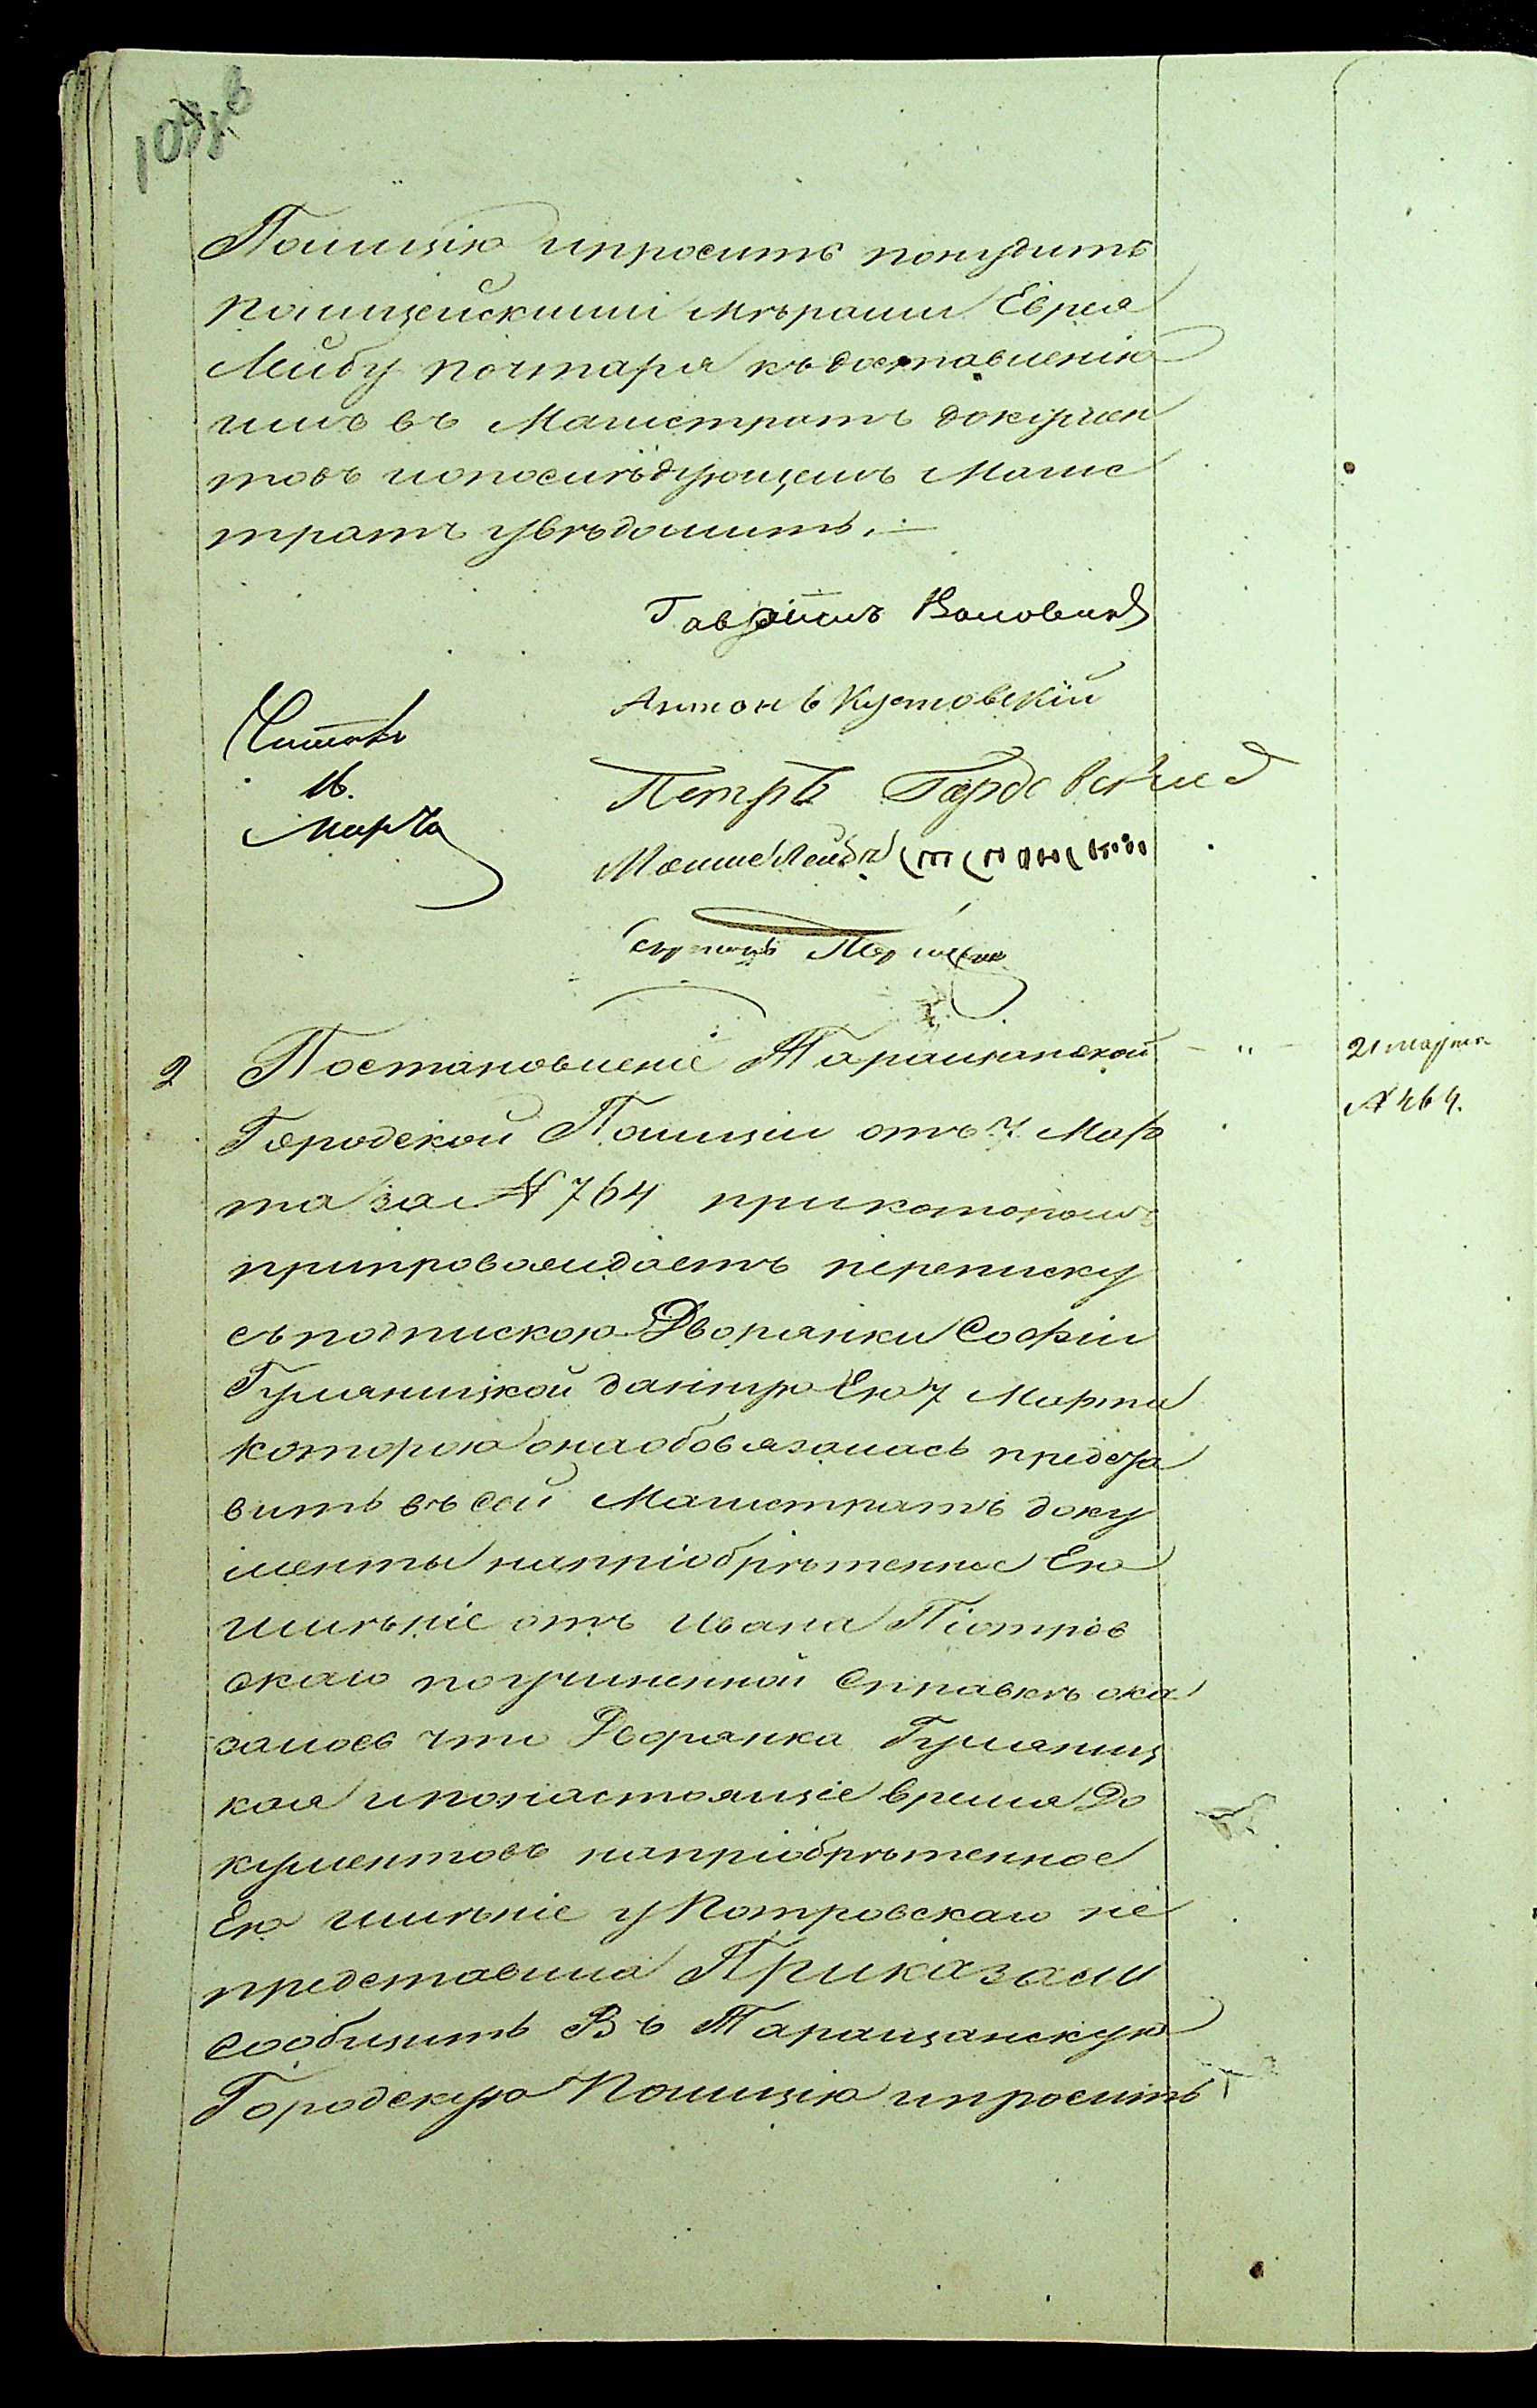 Полицію ипросить понудить
полицейскими мѣрами Еврея
Лейбу почтаря къ доставленію
имъ въ Магистратъ докумен
товъ ипопослѣдующемъ Магис
тратъ увѣдомить. —
Гавріилъ
Антонъ Кустовскій
Читалъ
16.
Марта
Петръ
Мошие Лейба
2 Постановленіе Таращанской
21 марта
Городской Полиціи отъ 7 Мар
№ 464.
та за № 764 прикоторомъ
припровождаетъ переписку
съ подпискою Дворянки Софіи
Гуляницкой даннгю Ею 7 Марта
которою она обовязалась предста
вить въ сей Магистратъ доку
менты напріобрѣтенное Ею
имѣніе отъ Ивана Піотров
скаго поучиненной Справкѣ ока
залось что Дворянка Гуляниц
кая ипонастоящіе время До
кументовъ напріобрѣтенное
Ею имѣніе у Потровскаго не
представила Приказали
Сообщить Въ Таращанскую
Городскую Полицію ипросить